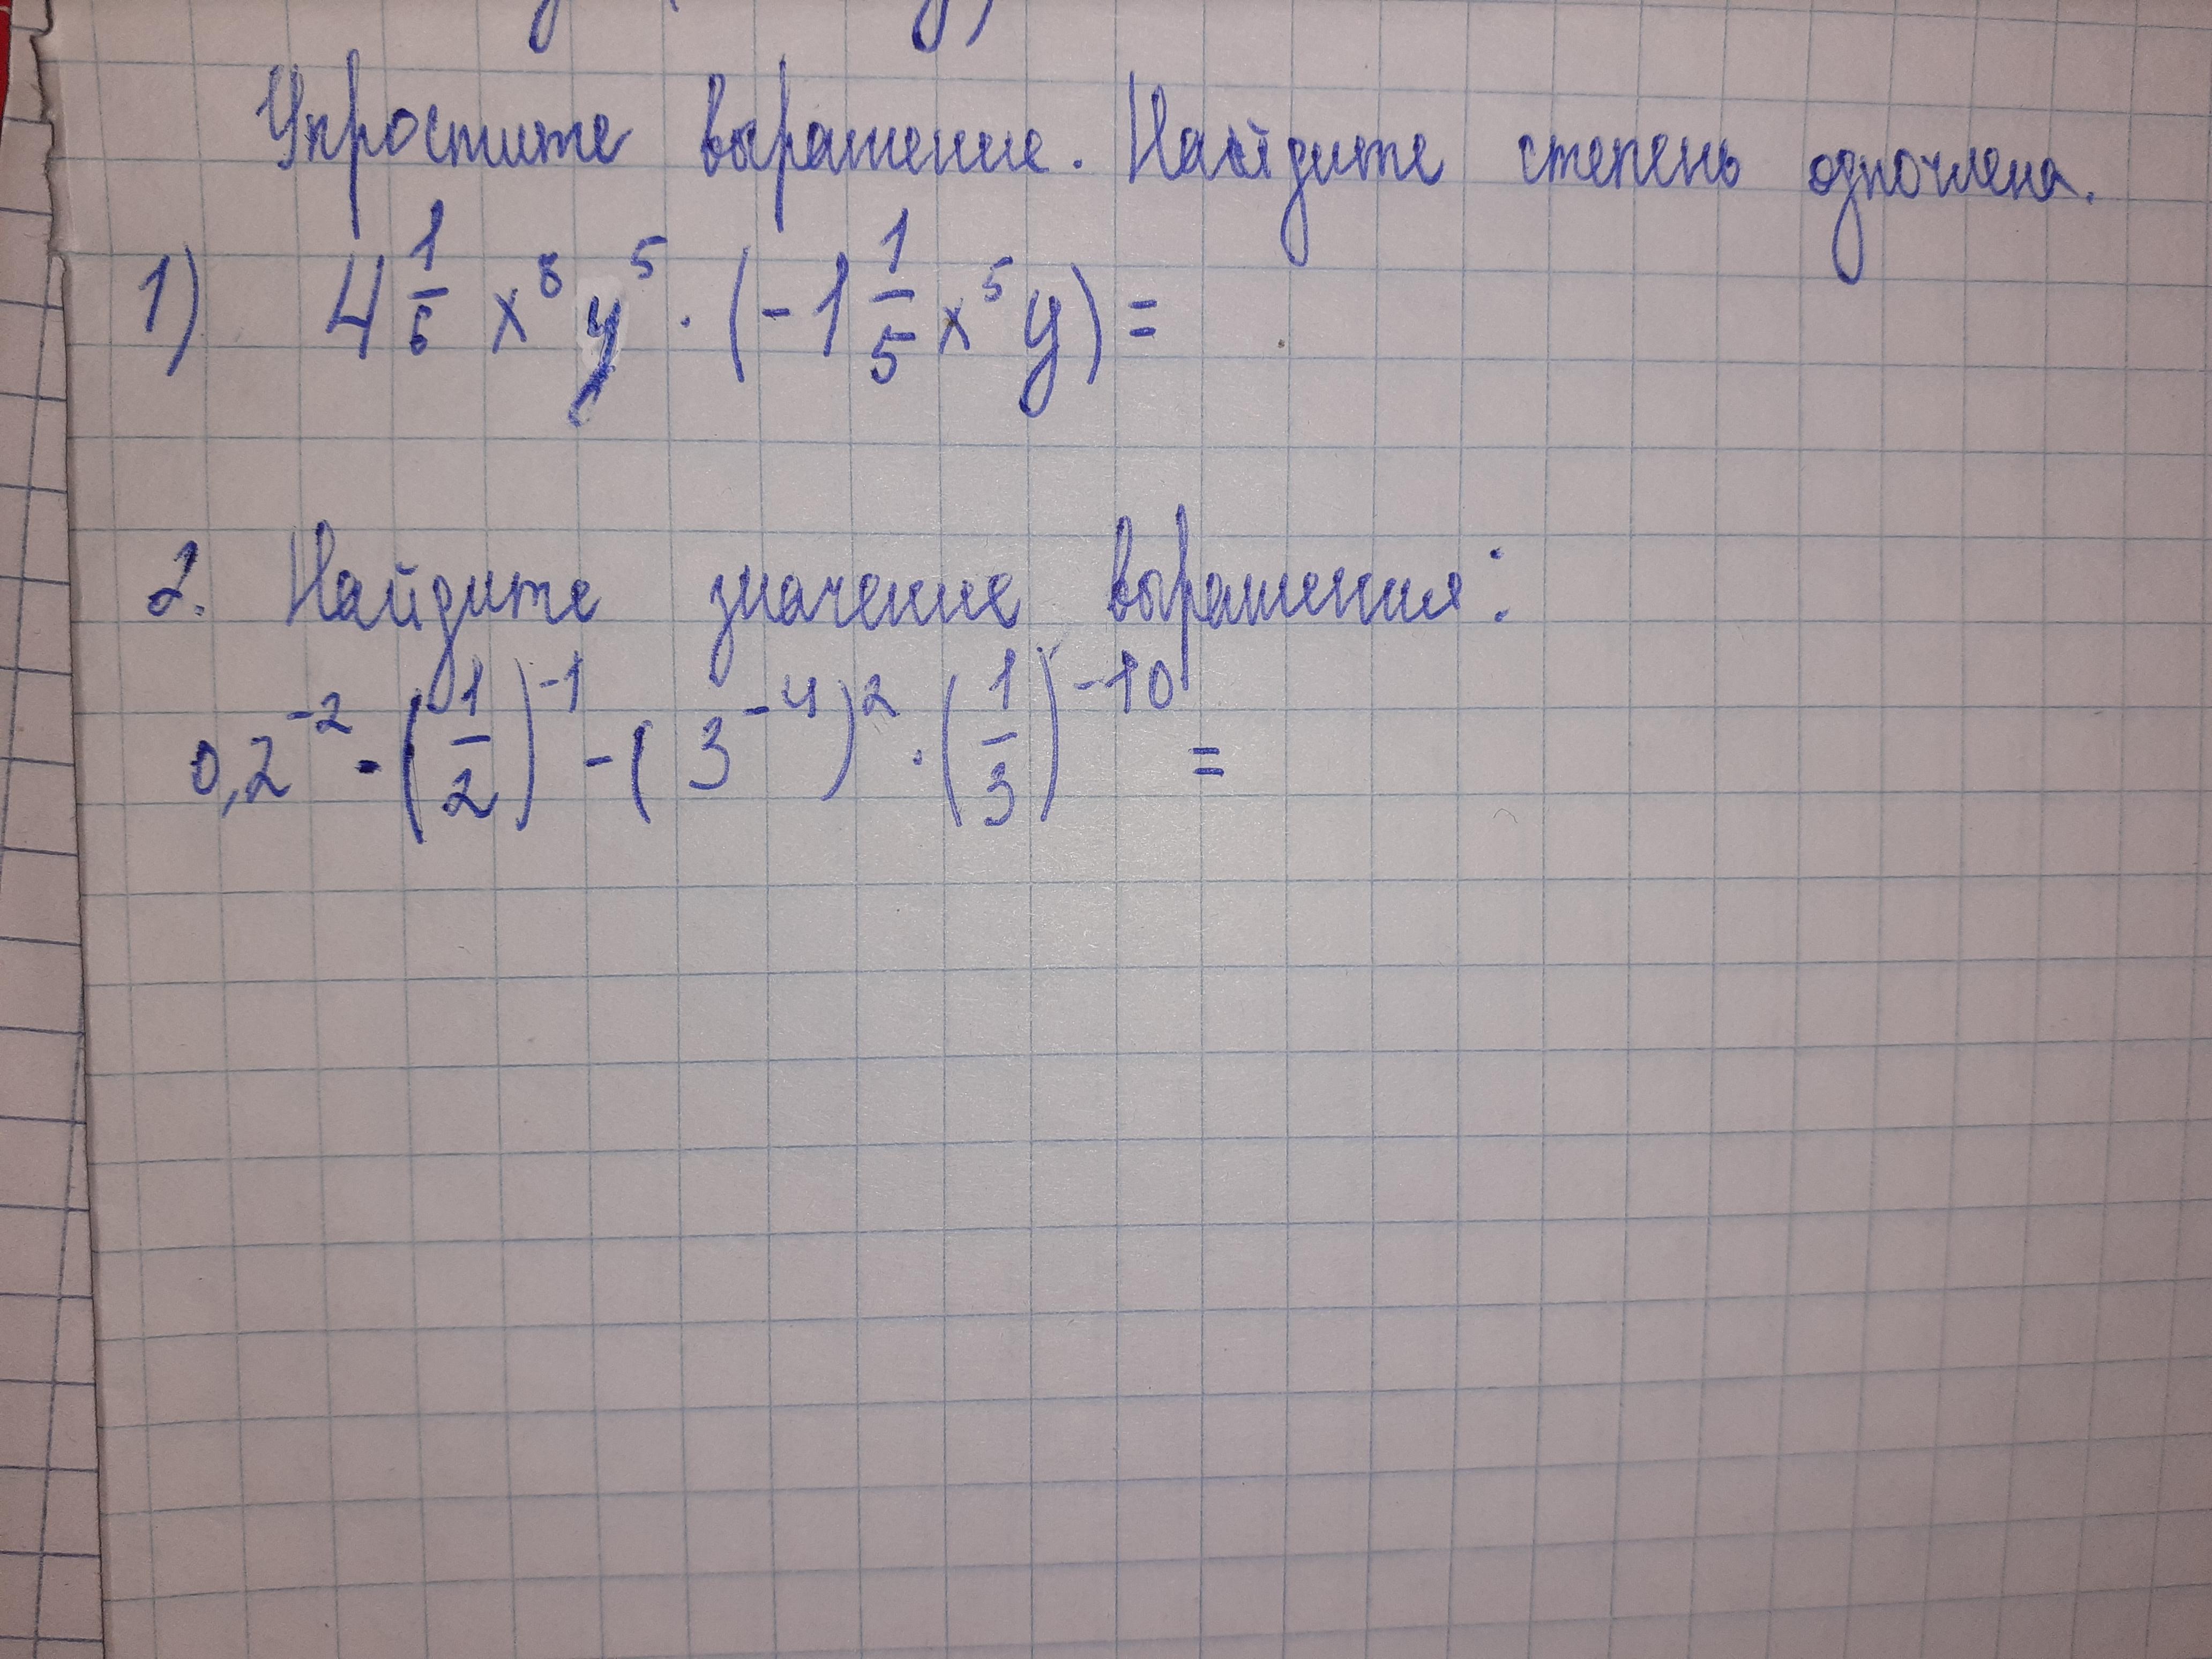 Упростите выражение. Найдите степень одночлена.
1) 4 1/6 x⁸ y⁵ · (-1 1/5 x⁵ y) =
2. Найдите значение выражения:
0,2⁻² · (1/2)⁻¹ - (3⁻⁴)² · (1/3)⁻¹⁰ =